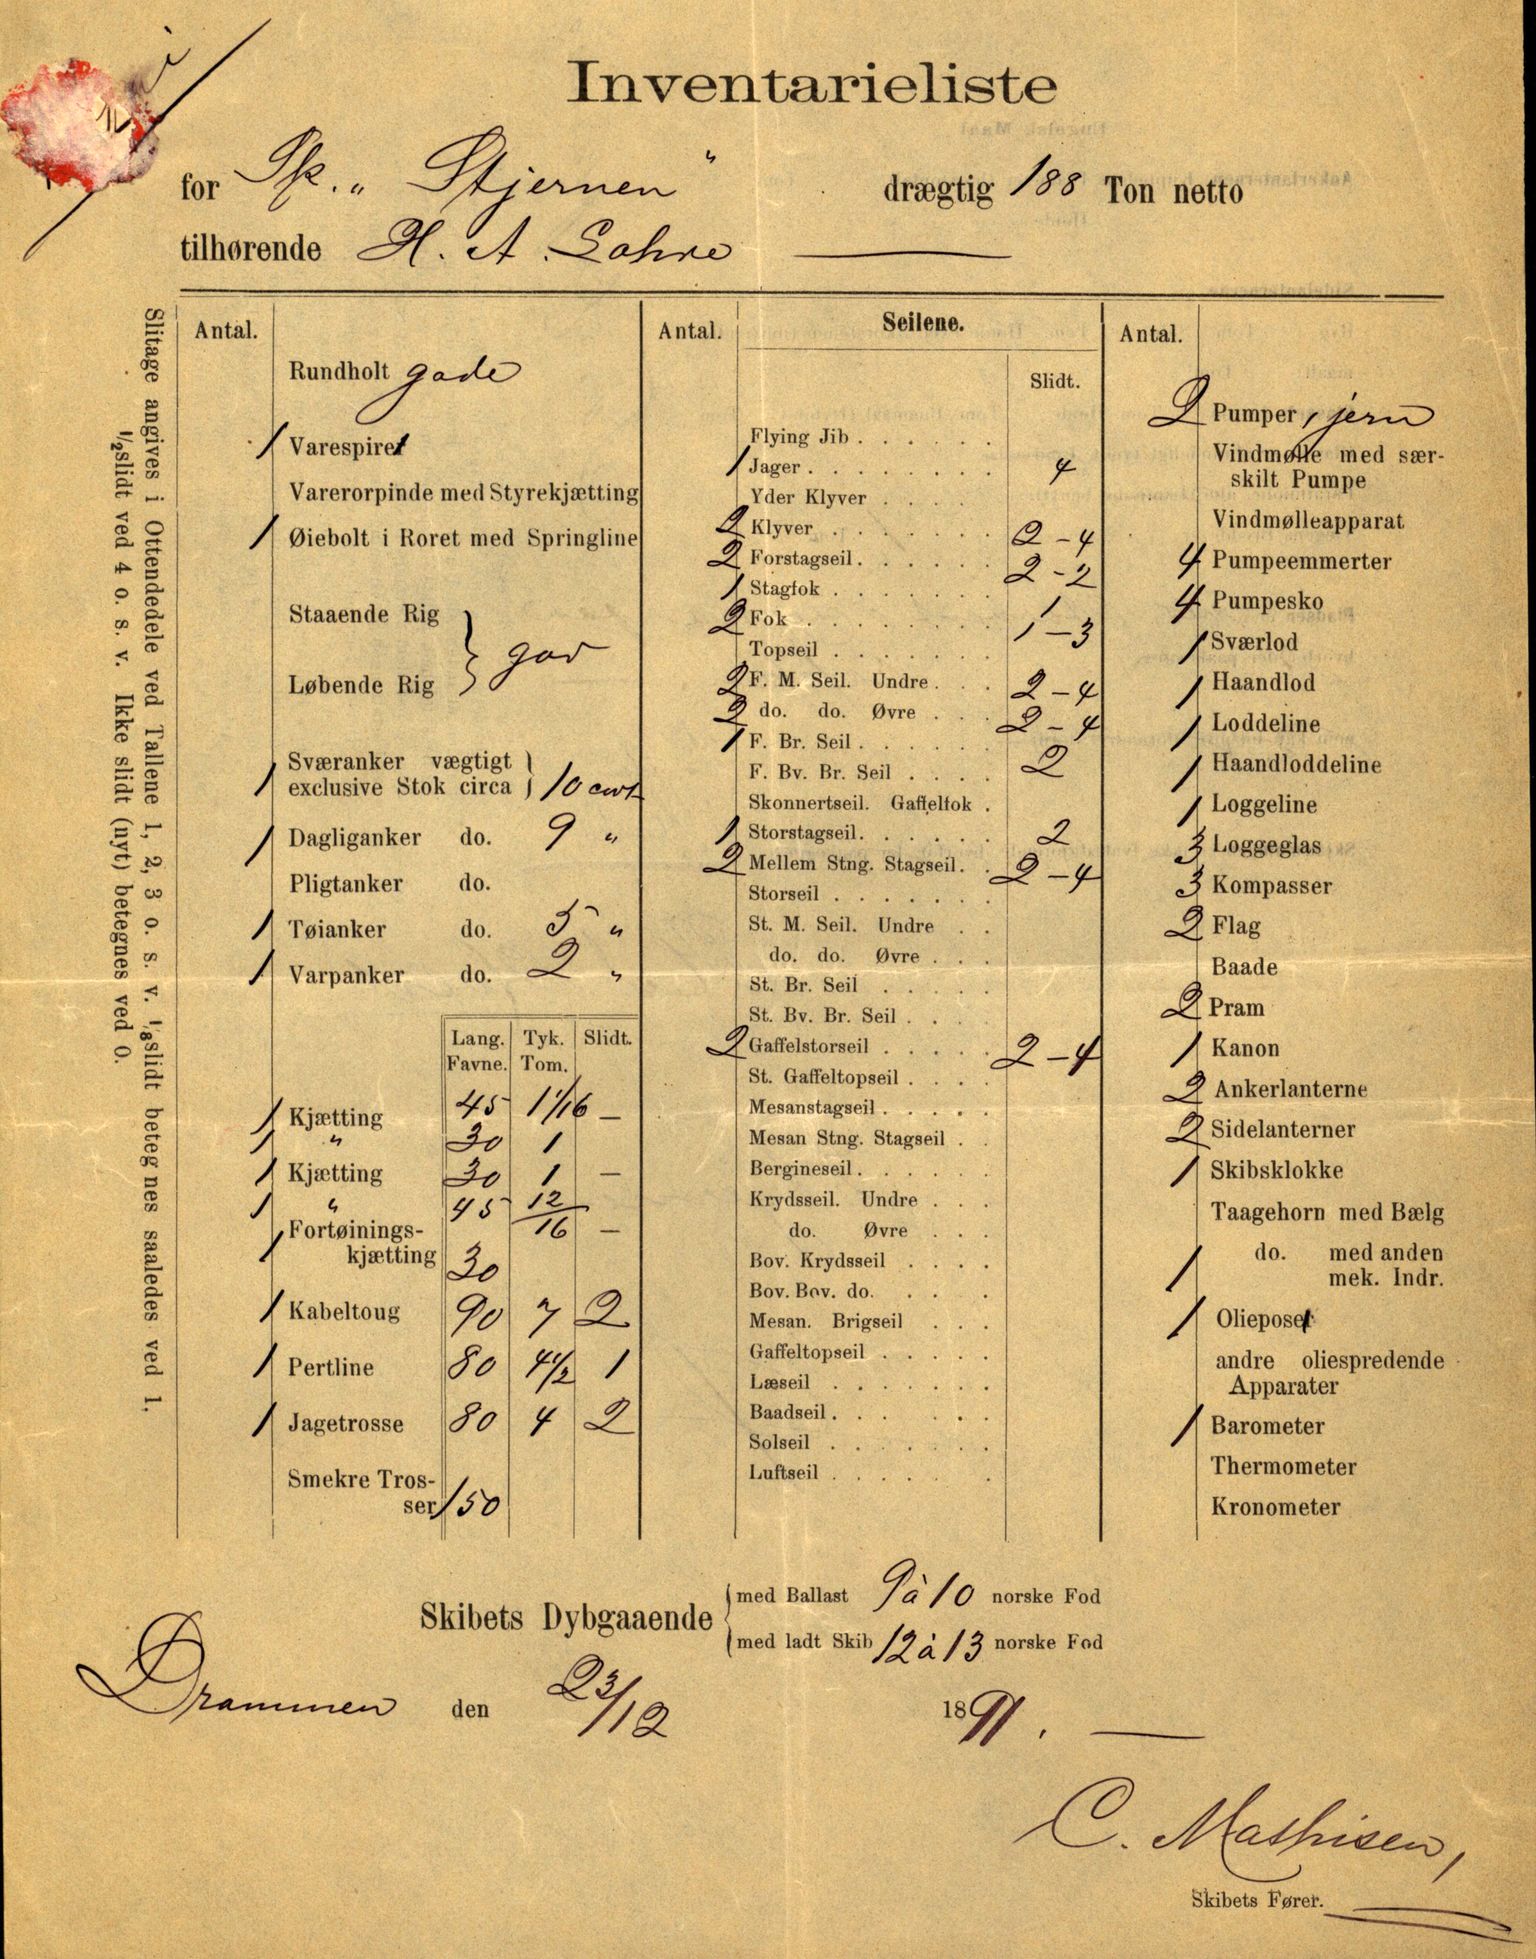 Inventarieliste
for Sk. „Stjernen" drægtig 188 Ton netto
tilhørende H. A. Lohre
Slitage angives i Ottendedele ved Tallene 1, 2, 3 o. s. v. 1/8 slidt betegnes saaledes ved 1.
1/2 slidt ved 4 o. s. v. Ikke slidt (nyt) betegnes ved 0.
Antal.
Rundholt gode
1 Varespiret
Varerorpinde med Styrekjætting
1 Øiebolt i Roret med Springline
Staaende Rig
Løbende Rig } god
Sværanker vægtigt
1 exclusive Stok circa } 10 cwt
1 Dagliganker do. 9 "
Pligtanker do.
1 Tøianker do. 5 "
1 Varpanker do. 2 "
Lang. Tyk. Slidt.
Favne. Tom.
1 Kjætting 45 1 1/16 —
1 " 30 1
1 Kjætting 30 1 —
1 " 45 12/16 —
1 Fortøinings-
kjætting 30
1 Kabeltoug 90 7 2
1 Pertline 80 4 1/2 1
1 Jagetrosse 80 4 2
Smekre Tros-
ser 150
Antal. Seilene.
Slidt.
Flying Jib . . . . . .
1 Jager . . . . . . . . 4
Yder Klyver . . . .
2 Klyver . . . . . . . 2 - 4
2 Forstagseil . . . . . . 2 - 2
1 Stagfok . . . . . . .
2 Fok . . . . . . . . 1 - 3
Topseil . . . . . . .
2 F. M. Seil. Undre . . . 2 - 4
2 do. do. Øvre . . . 2 - 4
1 F. Br. Seil . . . . . . 2
F. Bv. Br. Seil . . . .
Skonnertseil. Gaffelfok .
1 Storstagseil . . . . . . 2
2 Mellem Stng. Stagseil . . 2 - 4
Storseil . . . . . . .
St. M. Seil. Undre . .
do. do. Øvre . . .
St. Br. Seil . . . . .
St. Bv. Br. Seil . . . .
2 Gaffelstorseil . . . . . 2 - 4
St. Gaffeltopseil . . . .
Mesanstagseil . . . . .
Mesan Stng. Stagseil . .
Bergineseil . . . . . .
Krydsseil. Undre . . .
do. Øvre . . .
Bov. Krydsseil . . . .
Bov. Bov. do. . . . .
Mesan. Brigseil . . .
Gaffeltopseil . . . . .
Læseil . . . . . . .
Baadseil . . . . . .
Solseil . . . . . . .
Luftseil . . . . . .
Antal.
2 Pumper, jern
Vindmølle med sær-
skilt Pumpe
Vindmølleapparat
4 Pumpeemmerter
4 Pumpesko
1 Sværlod
1 Haandlod
1 Loddeline
1 Haandloddeline
1 Loggeline
3 Loggeglas
3 Kompasser
2 Flag
Baade
2 Pram
1 Kanon
2 Ankerlanterne
2 Sidelanterner
1 Skibsklokke
Taagehorn med Bælg
1 do. med anden
mek. Indr.
1 Oliepose
andre oliespredende
Apparater
1 Barometer
Thermometer
Kronometer
Skibets Dybgaaende
med Ballast 9 à 10 norske Fod
med ladt Skib 12 à 13 norske Fod
Drammen den 23/12 1891.
C. Mathisen,
Skibets Fører.